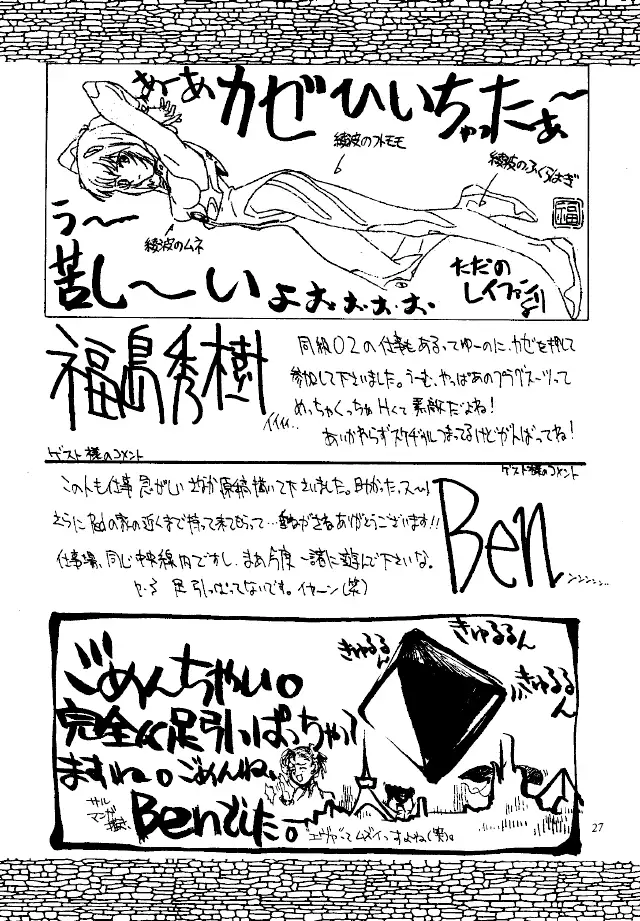 あ〜あ
カゼひいちゃったぁ〜
綾波のフトモモ
綾波のふくらはぎ
福
う〜
綾波のムネ
苦し〜いよぉぉぉぉ
ただの
レイファンより
福島秀樹
イイイ…
同級02の仕事もあるってゆーのに、カゼを押して
参加して下さいました。うーむ、やっぱあのプラグスーツって
めっちゃくっちゃHくて素敵だよね!
あいかわらずスケヂュルつまってるけどがんばってね!
ゲスト様のコメント
ゲスト様のコメント
この人も仕事急がしい中原稿描いて下さいました。助かったっス〜!
さらにRedの家の近くまで持って来てもらって…重ねがさねありがとうございます!!
仕事場、同じ中央線内ですし、まあ今度一諸に遊んで下さいな。
足引っぱってないです。イヤーン(笑)
Ben
ンンンン…
ごめんちゃい。
完全に足引っぱっちゃって
ますね。ごめんね、
サル
マンガ
Benでした。
きゅるるん
きゅるるるん
きゅるるん
エヴァってムズイっすよね(笑)。
27